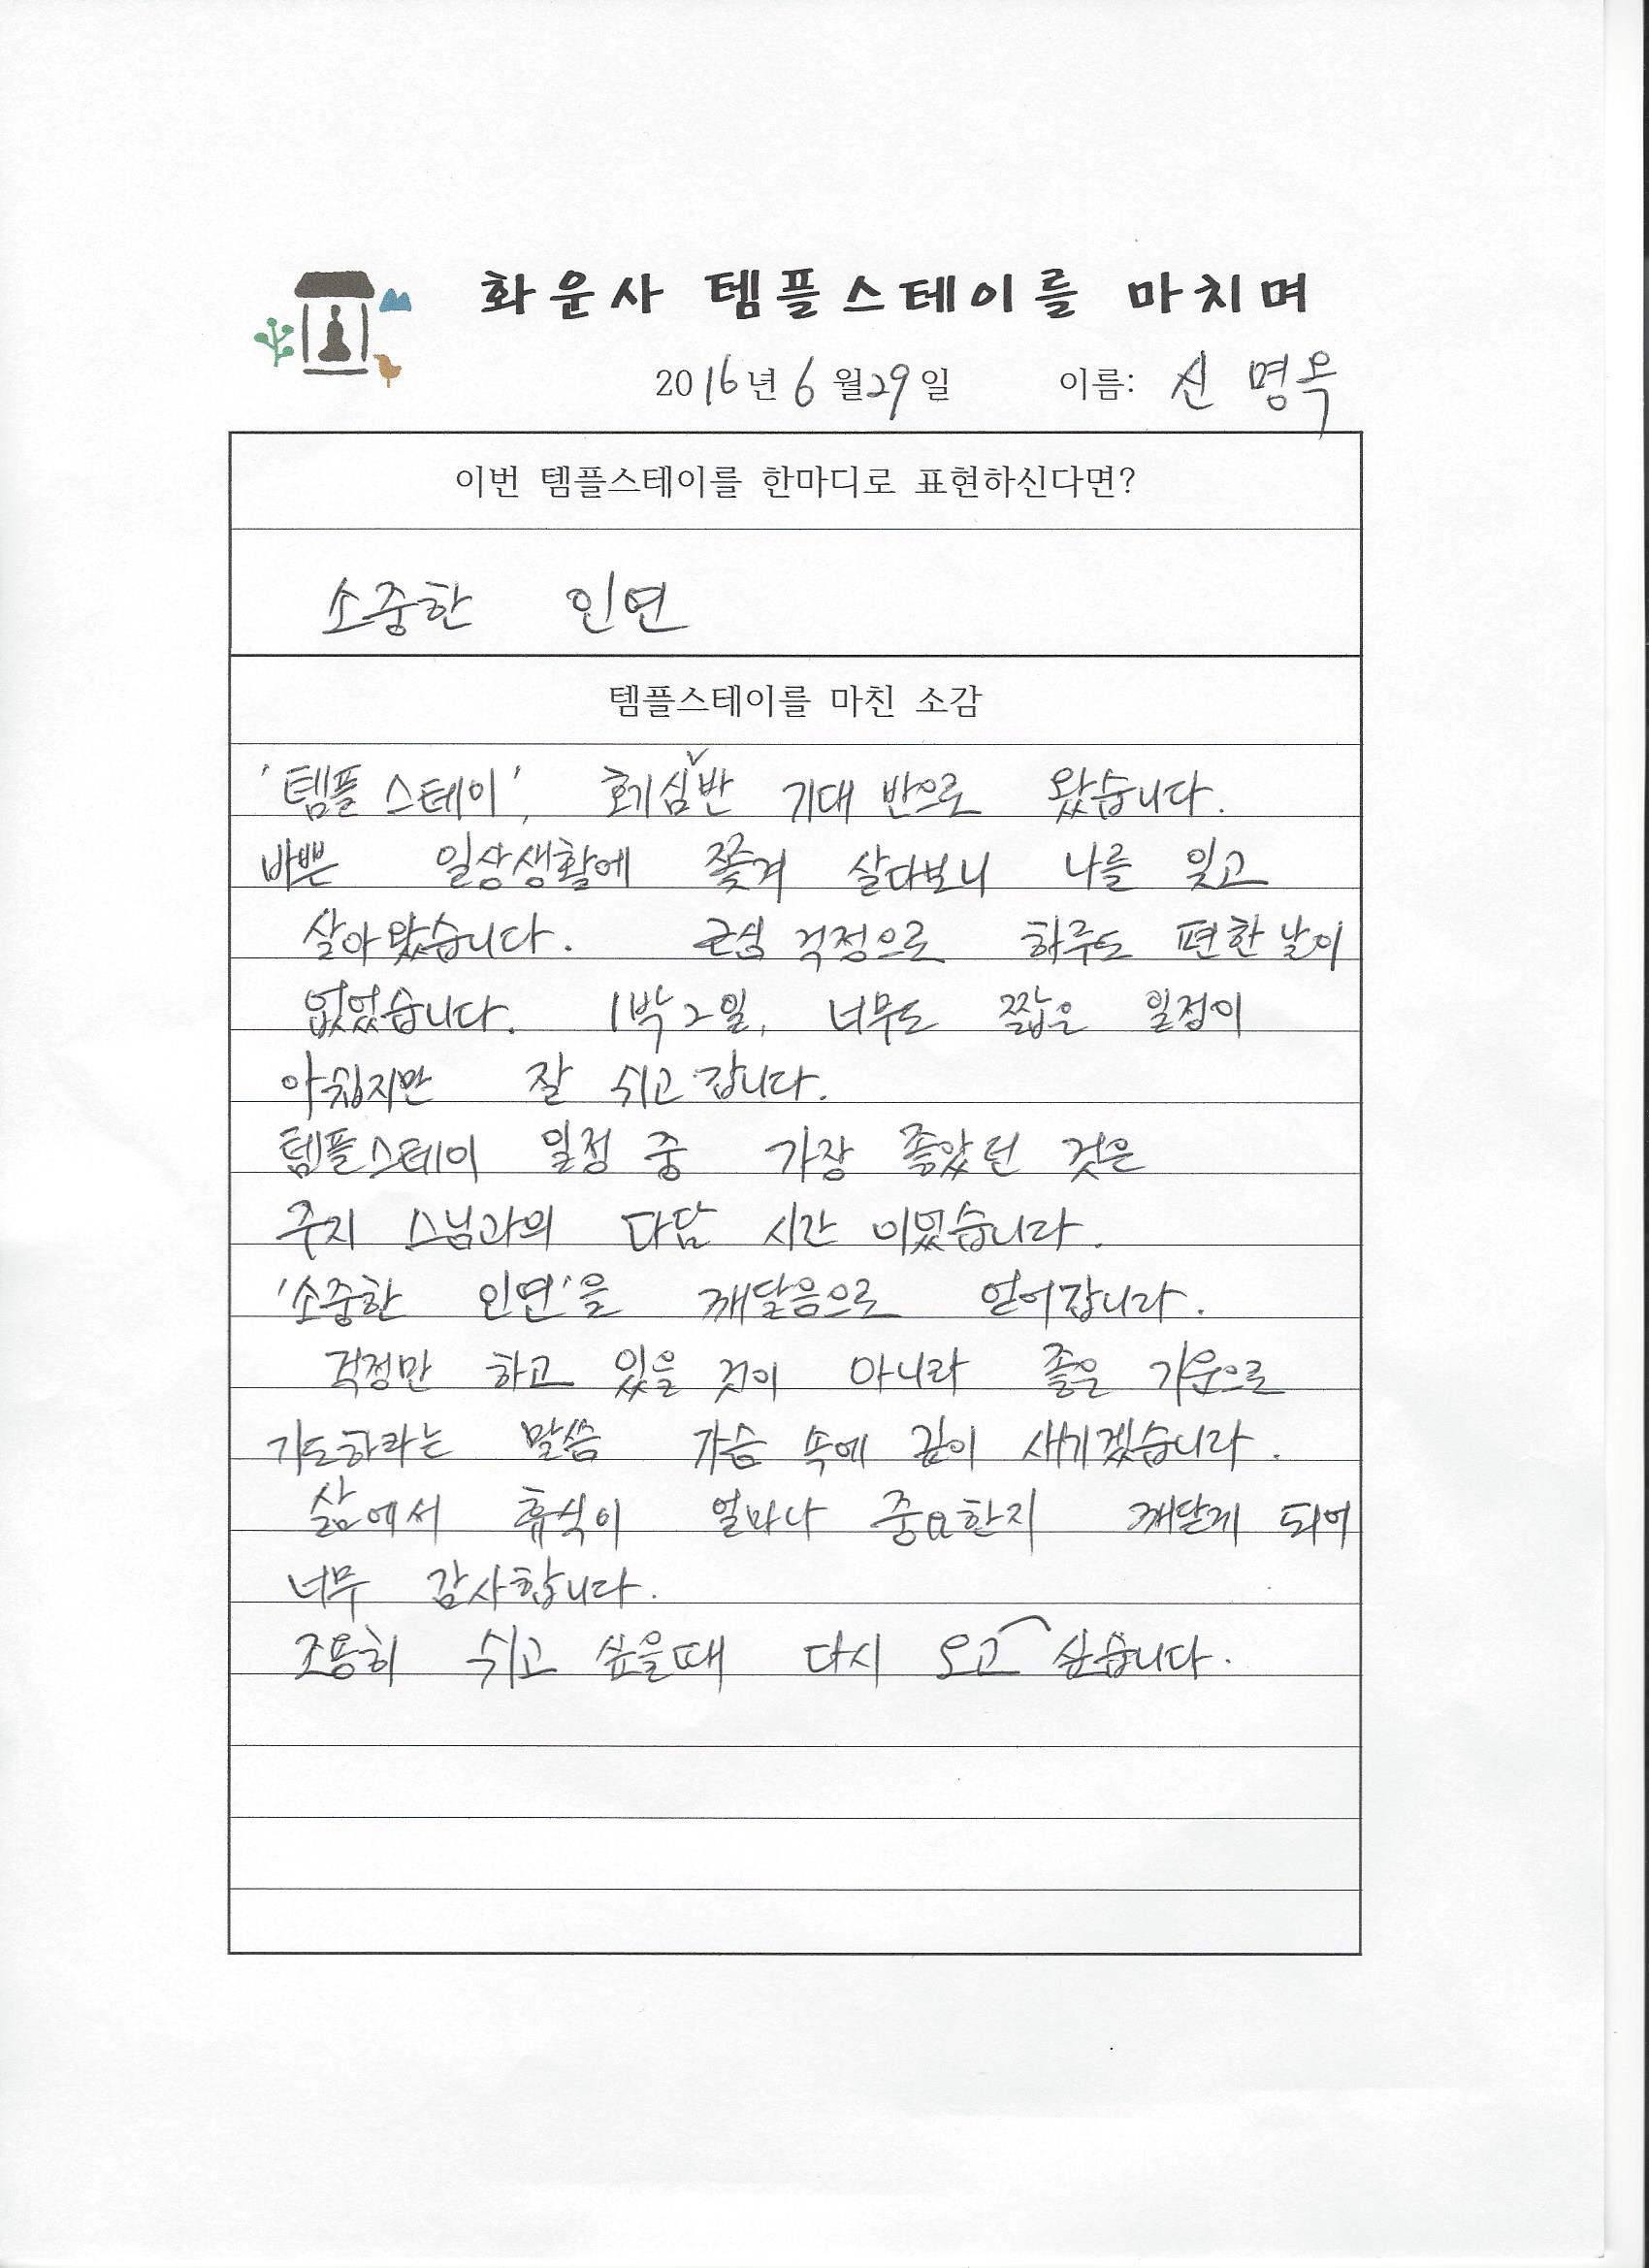 화운사 템플스테이를 마치며
2016년 6월 29일 이름: 신명옥
이번 템플스테이를 한마디로 표현하신다면?
소중한 인연
템플스테이를 마친 소감
'템플스테이', 호기심 반 기대 반으로 왔습니다.
바쁜 일상생활에 쫓겨 살다보니 나를 잊고
살아왔습니다. 근심 걱정으로 하루도 편한 날이
없었습니다. 1박2일, 너무도 짧은 일정이
아쉽지만 잘 쉬고 갑니다.
템플스테이 일정 중 가장 좋았던 것은
주지 스님과의 다담 시간 이었습니다.
'소중한 인연'을 깨달음으로 얻어갑니다.
걱정만 하고 있을 것이 아니라 좋은 기운으로
기도하라는 말씀 가슴 속에 깊이 새기겠습니다.
삶에서 휴식이 얼마나 중요한지 깨닫게 되어
너무 감사합니다.
조용히 쉬고 싶을때 다시 오고싶습니다.